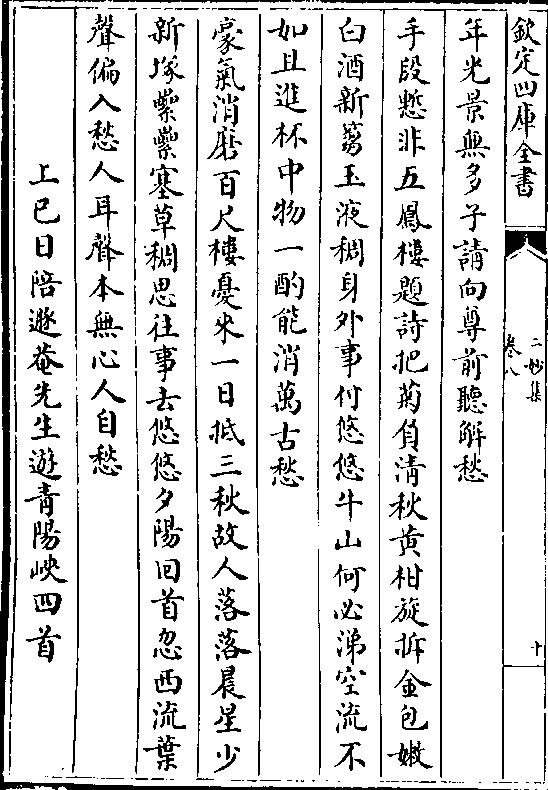 欽定四庫全書
二妙集
卷八
十
年光景無多子請向尊前聽解愁
手段慙非五鳳樓題詩把菊負清秋黄柑旋拆金包嫩
白酒新篘玉液稠身外事付悠悠牛山何必涕空流不
如且進杯中物一酌能消萬古愁
豪氣消磨百尺樓憂来一日抵三秋故人落落晨星少
新塚纍纍塞草稠思往事去悠悠夕陽回首忽西流葉
聲偏入愁人耳聲本無心人自愁
上巳日陪遯菴先生遊青陽峽四首